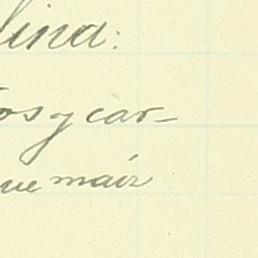 lina:
os y car-
ue maíz